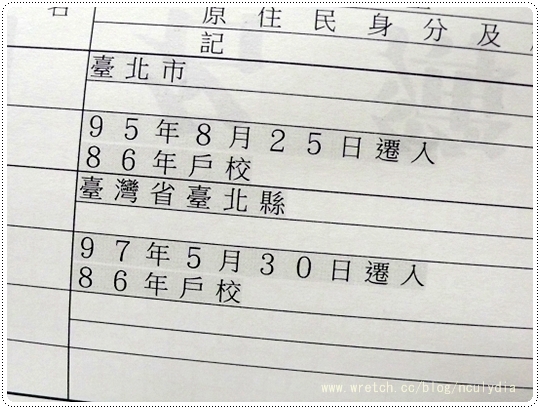 名
原住民身分及
記
臺北市
95年8月25日遷入
86年戶校
臺灣省臺北縣
97年5月30日遷入
86年戶校
www.wretch.cc/blog/nculydia